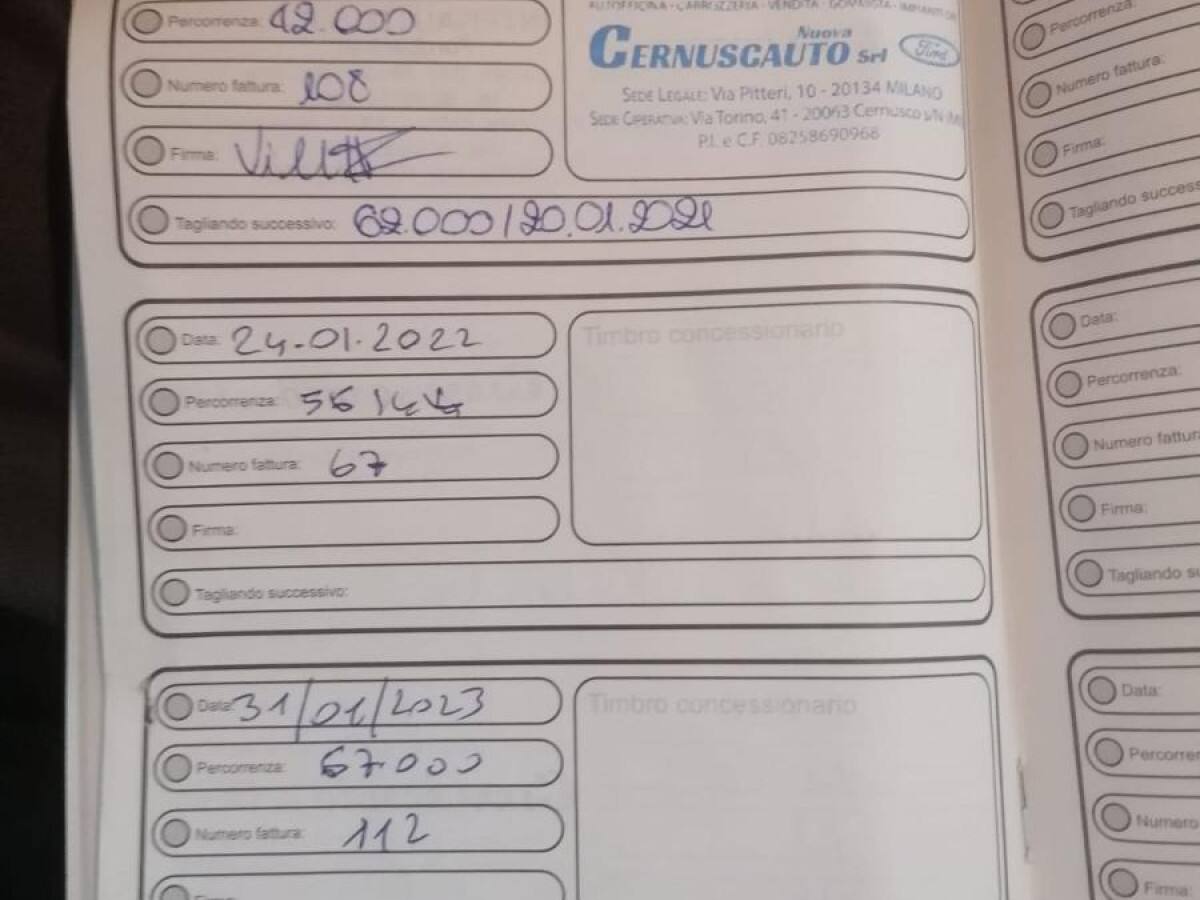 Percorrenza: 42.000
Numero fattura: 108
Firma:
Tagliando successivo: 62.000 / 20.01.2021
AUTOFFICINA - CARROZZERIA - VENDITA - GOMMISTA - IMPIANTI
Nuova
CERNUSCAUTO Srl Ford
SEDE LEGALE: Via Pitteri, 10 - 20134 MILANO
SEDE OPERATIVA: Via Torino, 41 - 20063 Cernusco s/N (MI)
P.I. e C.F. 08258690968
Data: 24-01.2022
Percorrenza:
Numero fattura: 67
Firma:
Tagliando successivo:
Timbro concessionario
Data: 31/01/2023
Percorrenza: 67000
Numero fattura: 112
Firma:
Timbro concessionario
Percorrenza:
Numero fattura:
Firma:
Tagliando success
Data:
Percorrenza:
Numero fattur
Firma:
Tagliando su
Data:
Percorre
Numero
Firma: